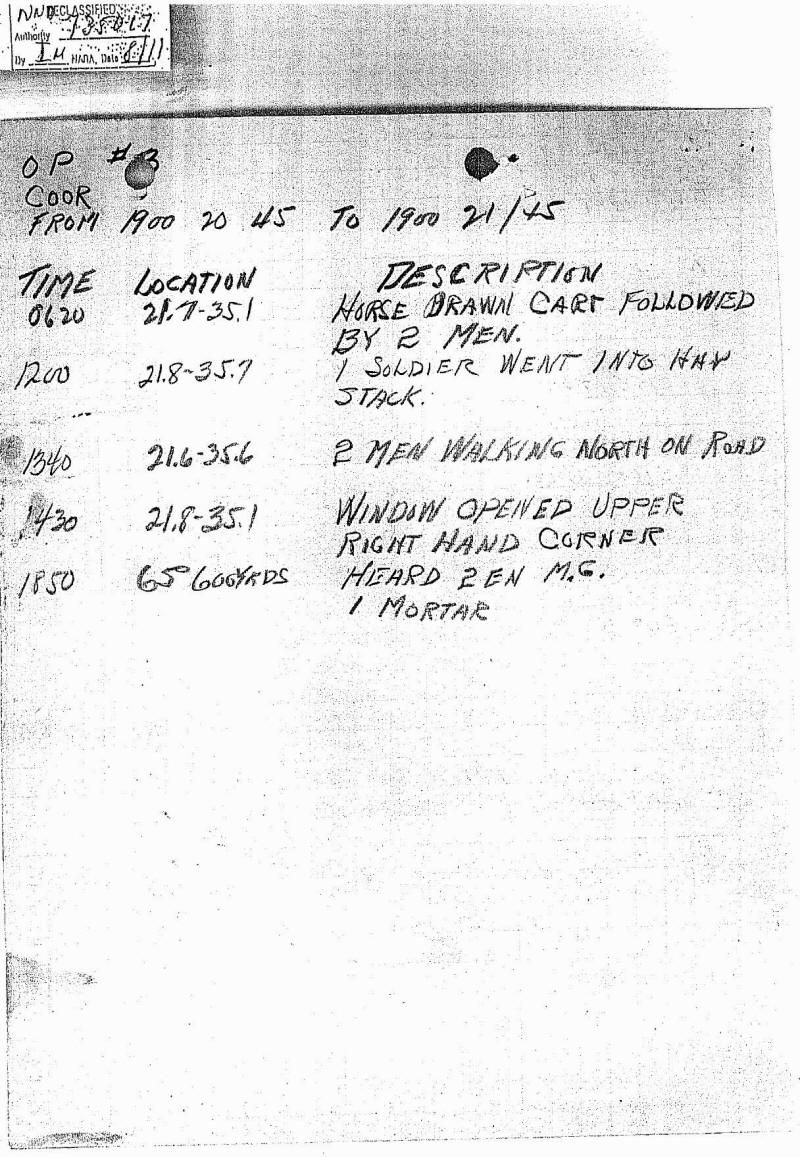 NND DECLASSIFIED
Authority 735017
By IM NARA, Date 8/11
OP #3
COOR
FROM 1900 20 45 To 1900 21/45
TIME LOCATION DESCRIPTION
0620 21.7-35.1 HORSE DRAWN CART FOLLOWED
BY 2 MEN.
1200 21.8-35.7 1 SOLDIER WENT INTO HAY
STACK.
1340 21.6-35.6 2 MEN WALKING NORTH ON ROAD
1430 21.8-35.1 WINDOW OPENED UPPER
RIGHT HAND CORNER
1850 65° 600YRDS HEARD 2 EN M.G.
1 MORTAR